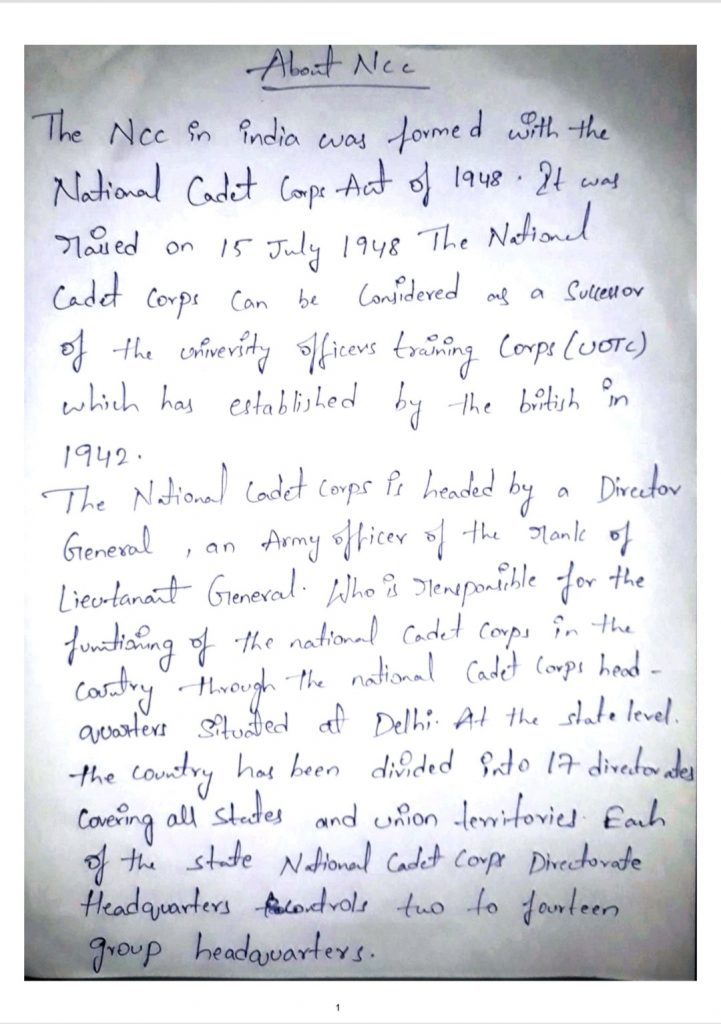 About Ncc
The Ncc in india was formed with the
National Cadet Corps Act of 1948. It was
raised on 15 July 1948 The National
Cadet Corps Can be Considered as a Successor
of the university officers training Corps (UOTC)
which has established by the british in
1942.
The National Cadet Corps is headed by a Director
General, an Army officer of the rank of
Lieutanant General. Who is responsible for the
functioning of the national Cadet Corps in the
country through the national Cadet Corps head-
quarters situated at Delhi. At the state level.
the country has been divided into 17 directorates
Covering all states and union territories. Each
of the state National Cadet Corps Directorate
Headquarters controls two to fourteen
group headquarters.
1